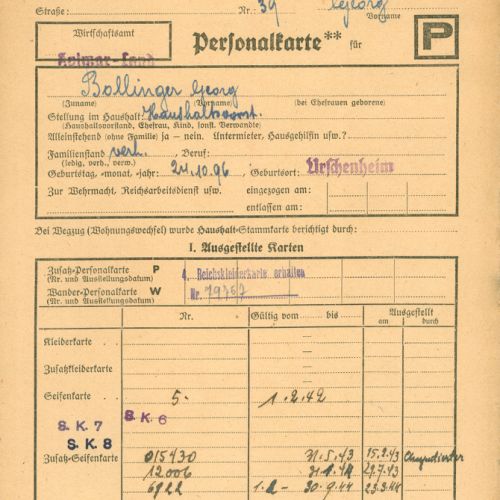 Straße: Nr. 39 Georg
Vorname
Wirtschaftsamt
Personalkarte** für P
Bollinger Georg
(Zuname) (Vorname) (bei Ehefrauen geborene)
Stellung im Haushalt: Haushaltsvorst.
(Haushaltsvorstand, Ehefrau, Kind, sonst. Verwandte)
Alleinstehend (ohne Familie) ja – nein. Untermieter, Hausgehilfin usw.?
Familienstand verh. Beruf:
(ledig, verh., verw.)
Geburtstag, -monat, -jahr: 24.10.96 Geburtsort: Urschenheim
Zur Wehrmacht, Reichsarbeitsdienst usw. eingezogen am:
entlassen am:
Bei Wegzug (Wohnungswechsel) wurde Haushalt-Stammkarte berichtigt durch:
I. Ausgestellte Karten
Zusatz-Personalkarte P
(Nr. und Ausstellungsdatum)
4. Reichskleiderkarte erhalten
Wander-Personalkarte W
(Nr. und Ausstellungsdatum)
Nr. 79767
Nr. Gültig vom bis Ausgestellt
am durch
Kleiderkarte
Zusatzkleiderkarte
Seifenkarte 5. 1.2.42
S.K.7 S.K.6
S.K.8
Zusatz-Seifenkarte 015430 31.5.43 15.2.43
12006 31.1.44 29.7.43
6922 1.2- 30.9.44 23.3.44